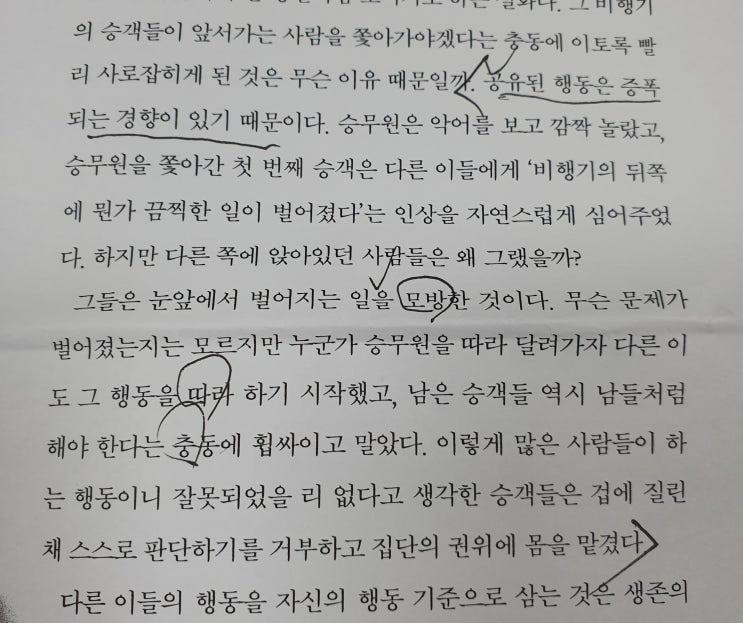 그 비행기
의 승객들이 앞서가는 사람을 쫓아가야겠다는 충동에 이토록 빨
리 사로잡히게 된 것은 무슨 이유 때문일까. 공유된 행동은 증폭
되는 경향이 있기 때문이다. 승무원은 악어를 보고 깜짝 놀랐고,
승무원을 쫓아간 첫 번째 승객은 다른 이들에게 ‘비행기의 뒤쪽
에 뭔가 끔찍한 일이 벌어졌다’는 인상을 자연스럽게 심어주었
다. 하지만 다른 쪽에 앉아있던 사람들은 왜 그랬을까?
그들은 눈앞에서 벌어지는 일을 모방한 것이다. 무슨 문제가
벌어졌는지는 모르지만 누군가 승무원을 따라 달려가자 다른 이
도 그 행동을 따라 하기 시작했고, 남은 승객들 역시 남들처럼
해야 한다는 충동에 휩싸이고 말았다. 이렇게 많은 사람들이 하
는 행동이니 잘못되었을 리 없다고 생각한 승객들은 겁에 질린
채 스스로 판단하기를 거부하고 집단의 권위에 몸을 맡겼다.
다른 이들의 행동을 자신의 행동 기준으로 삼는 것은 생존의